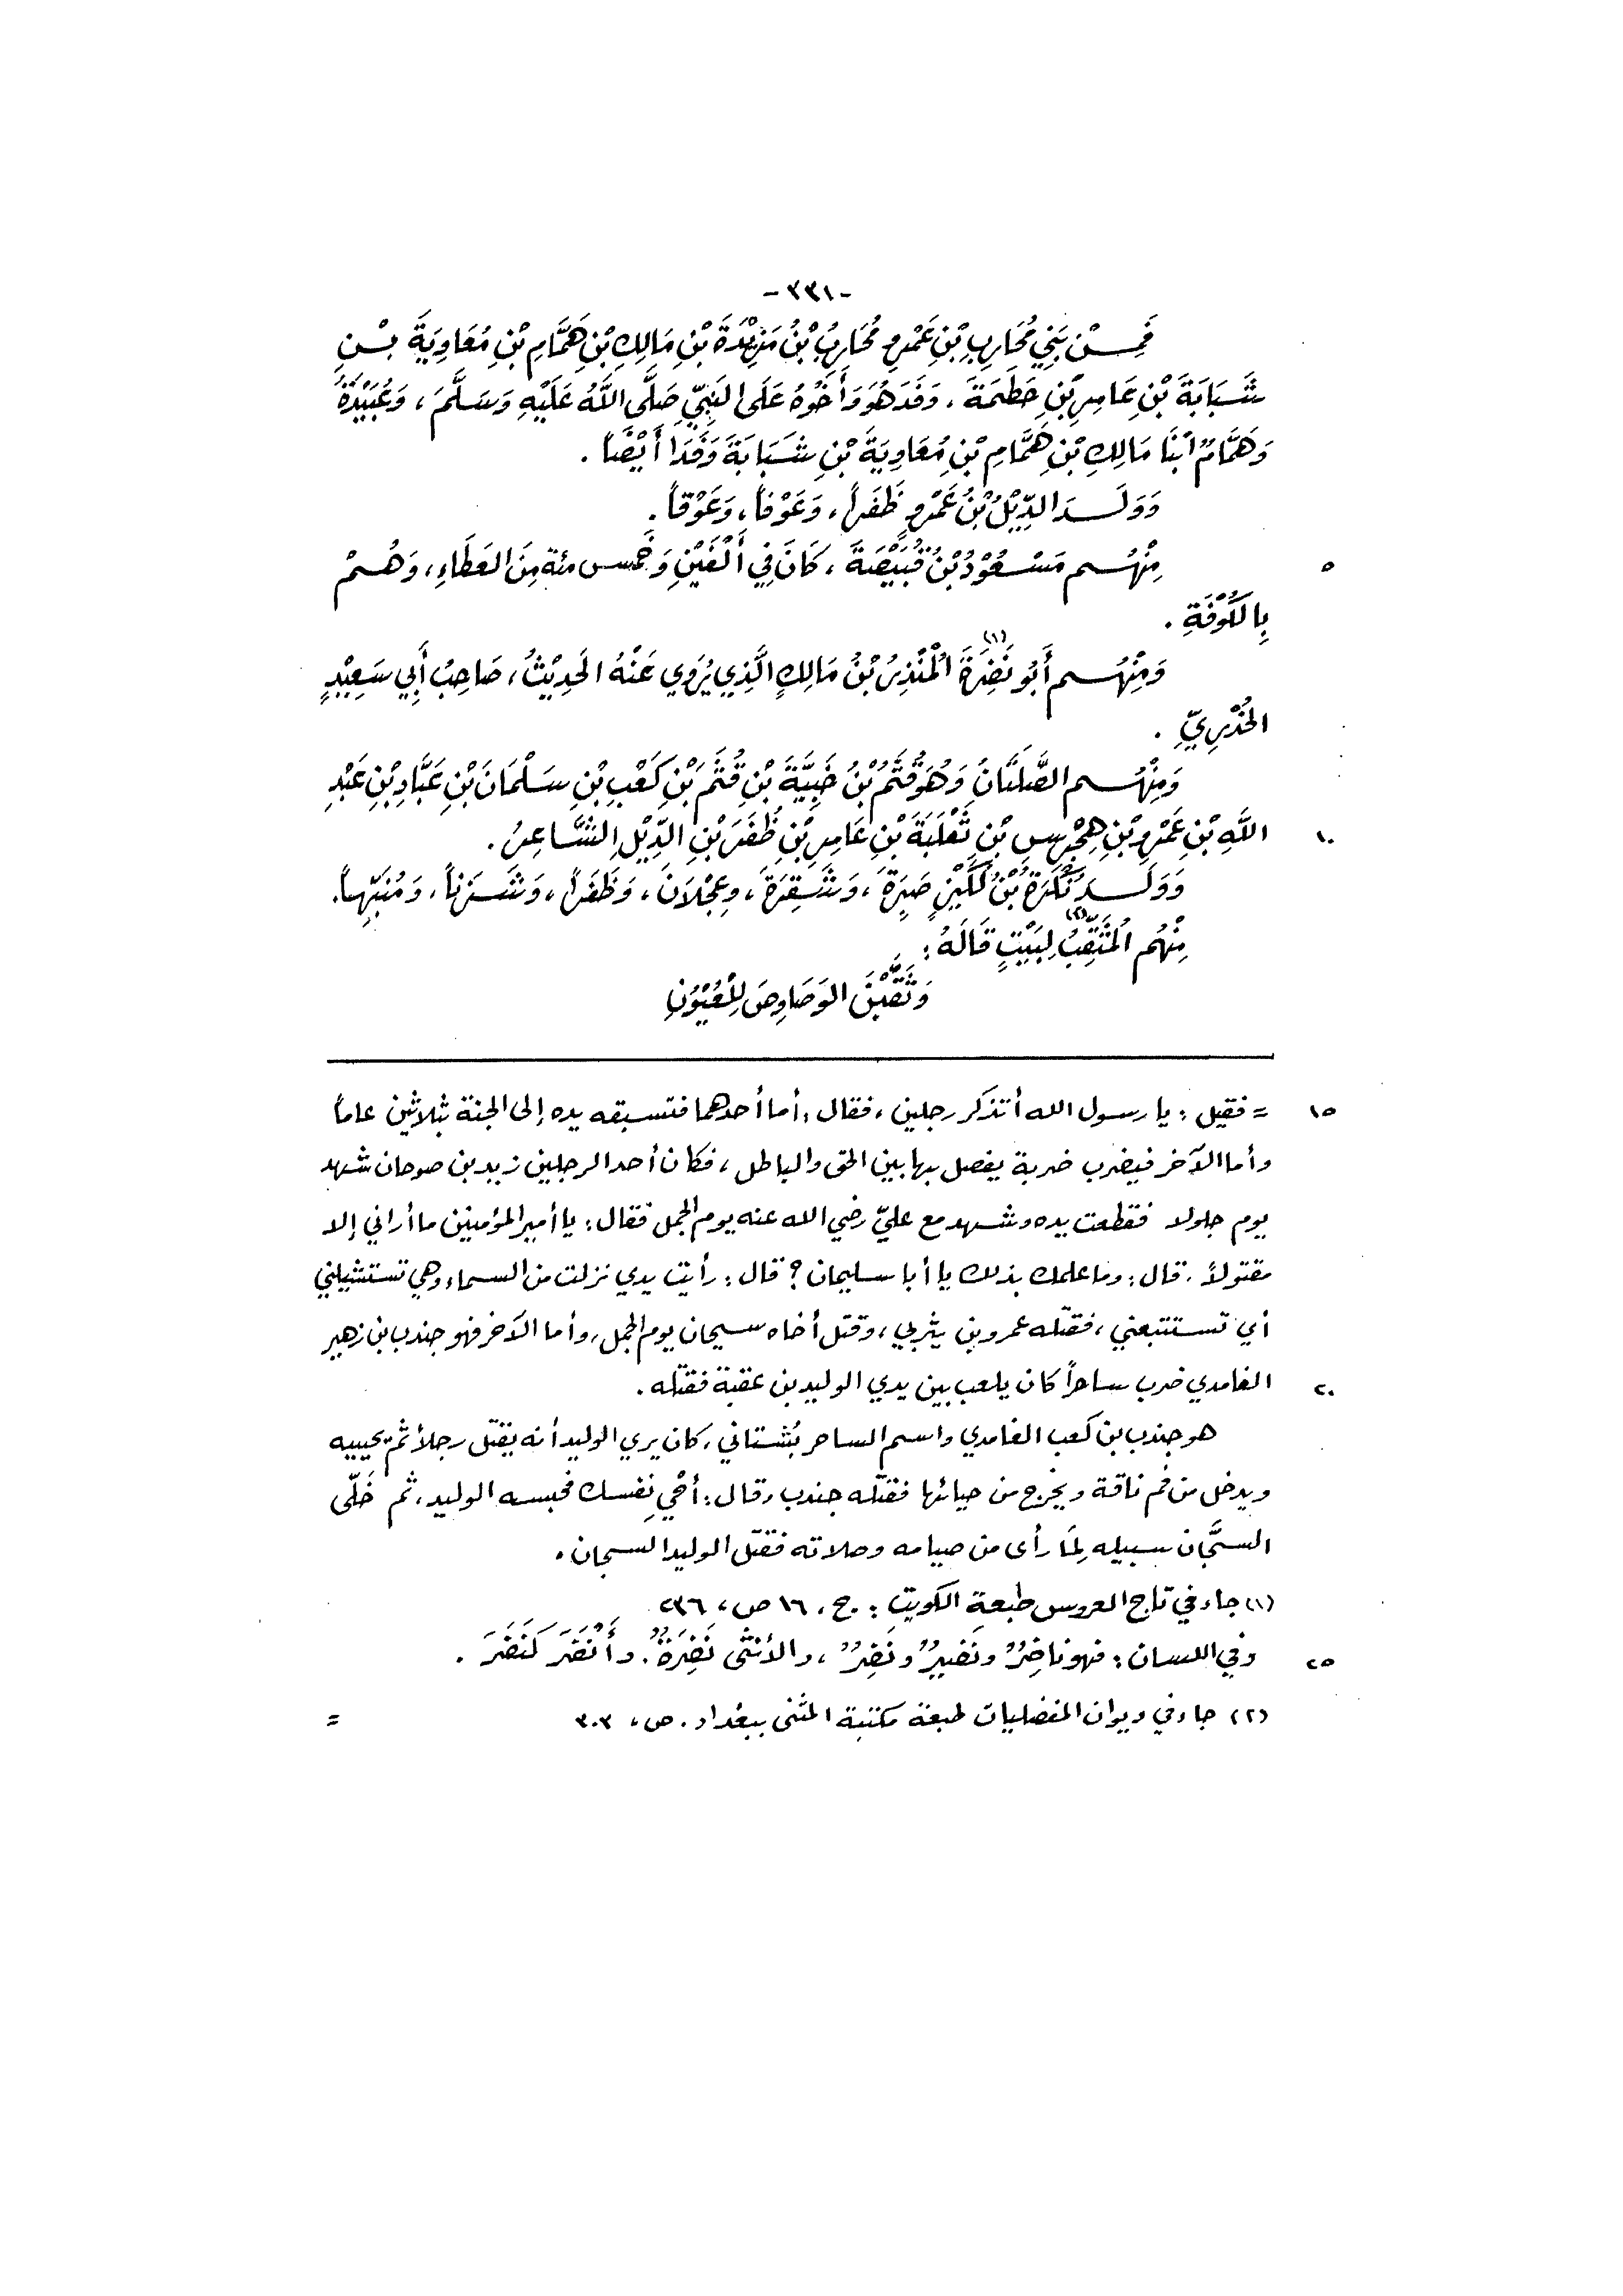 -٣٣١-
فَمِـنْ بَنِي مُحَارِبِ بْنِ عَمْرٍو مُحَارِبُ بْنُ مَزْيَدَةَ بْنِ مَالِكِ بْنِ هَمَّامِ بْنِ مُعَاوِيَةَ بـنِ
شَبَابَةَ بْنِ عَامِرِ بْنِ حَطَمَةَ، وَفَدَ هُوَ وَأَخُوْهُ عَلَى النَبِيِّ صَلَّى اللَّهُ عَلَيْهِ وَسَلَّمَ، وَعُبَيْدَةُ
وَهَمَّامٌ ابْنَا مَالِكِ بْنِ هَمَّامِ بْنِ مُعَاوِيَةَ بْنِ شَبَابَةَ وَفَدَا أَيْضَاً.
وَوَلَـدَ الدِّيْلُ بْنُ عَمْرٍو ظَفَراً، وَعَوْفاً، وَعَوْقاً.
٥ مِنْهُـم مَسْعُوْدُ بْنُ قُبَيْصَةَ، كَانَ فِي أَلْفَيْنِ وَخَمس مئة مِنَ العَطَاءِ، وَهُـمْ
بِالكُوْفَةِ.
وَمِنْهُـم أَبُو نَضِرَةَ (١) المُنْذِرُ بْنُ مَالِكٍ الَّذِي يُرْوَي عَنْهُ الحَدِيْثُ، صَاحِبُ أَبِي سَعِيْدٍ
الخُدْرِيِّ.
وَمِنْهُـم الصَّلَتَانُ وَهُوَ قُثَمُ بْنُ خَبِيَّةَ بْنِ قُثَمَ بْنِ كَعْبِ بْنِ سَلْمَانَ بْنِ عَبَّادِ بْنِ عَبْدِ
١٠ اللَّهِ بْنِ عَمْرِو بْنِ هِجْرِسِ بْنِ ثَعْلَبَةَ بْنِ عَامِرِ بْنِ ظَفَرَ بْنِ الدِّيْلِ الشَّاعِرُ.
وَوَلَـدَ نُكْرَةُ بْنُ لُكَيْزٍ صَبِرَةَ، وَشَقِرَةَ، وعِجْلَانَ، وَظَفَراً، وَشَزْناً، وَمُنَبِّهاً.
مِنْهُم المُثَقِّبُ (٢) لِبَيْتٍ قَالَهُ:
وَثَقَّبْنَ الوَصَاوِصَ لِلْعُيُوْنِ
١٥ = فقيل: يا رسول الله أتذكر رجلين، فقال: أما أحدهما فتسبقه يده إلى الجنة بثلاثين عاماً
وأما الآخر فيضرب ضربة يفصل بها بين الحق والباطل، فكان أحد الرجلين زيد بن صوحان شهد
يوم جلولا فقطعت يده وشهد مع عليّ رضي الله عنه يوم الجمل فقال: يا أمير المؤمنين ما أراني إلا
مقتولاً. قال: وما علمك بذلك يا أبا سليمان؟ قال: رأيت يدي نزلت من السماء وهي تستشيلني
أي تستتبعني، فقتله عمرو بن يثربي، وقتل أخاه سيحان يوم الجمل، وأما الآخر فهو جندب بن زهير
٢٠ الغامدي ضرب ساحراً كان يلعب بين يدي الوليد بن عقبة فقتله.
هو جندب بن كعب الغامدي واسم الساحر بُشتاني، كان يري الوليد أنه يقتل رجلاً ثم يحييه
ويدخل من فم ناقة ويخرج من حيائها فقتله جندب، وقال: أحْيِ نفسك فحبسه الوليد، ثم خَلّى
السجَّان سبيله لِمَا رأى من صيامه وصلاته فقتل الوليد السجان.
(١) جاء في تاج العروس طبعة الكويت: ج، ١٦ ص، ٢٣٦
٢٥ وفي اللسان: فهو ناضِرٌ ونَضيرٌ ونَضِرٌ، والأنثى نَضِرَةٌ. وأَنْضَرَ كَنَضَرَ.
(٢) جاء في ديوان المفضليات طبعة مكتبة المثنى ببغداد. ص، ٣٠٣ =